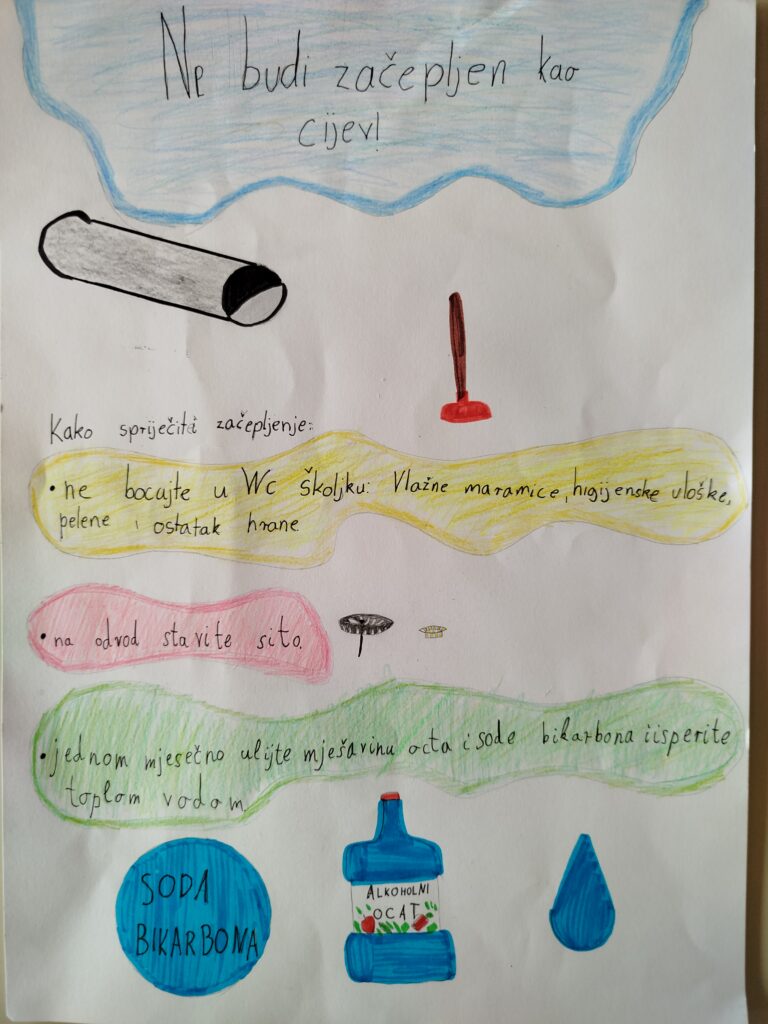 Ne budi začepljen kao
cijev!
Kako spriječiti začepljenje:
• ne bocajte u Wc školjku: Vlažne maramice, higijenske uloške,
pelene i ostatak hrane.
• na odvod stavite sito.
• jednom mjesečno ulijte mješavinu octa i sode bikarbona i isperite
toplom vodom.
SODA
BIKARBONA
ALKOHOLNI
OCAT